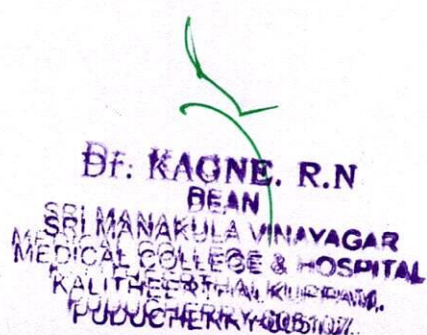 Dr. KAGNE. R.N
DEAN
SRI MANAKULA VINAYAGAR
MEDICAL COLLEGE & HOSPITAL
KALITHEERTHAL KUPPAM,
PUDUCHERRY-605107.